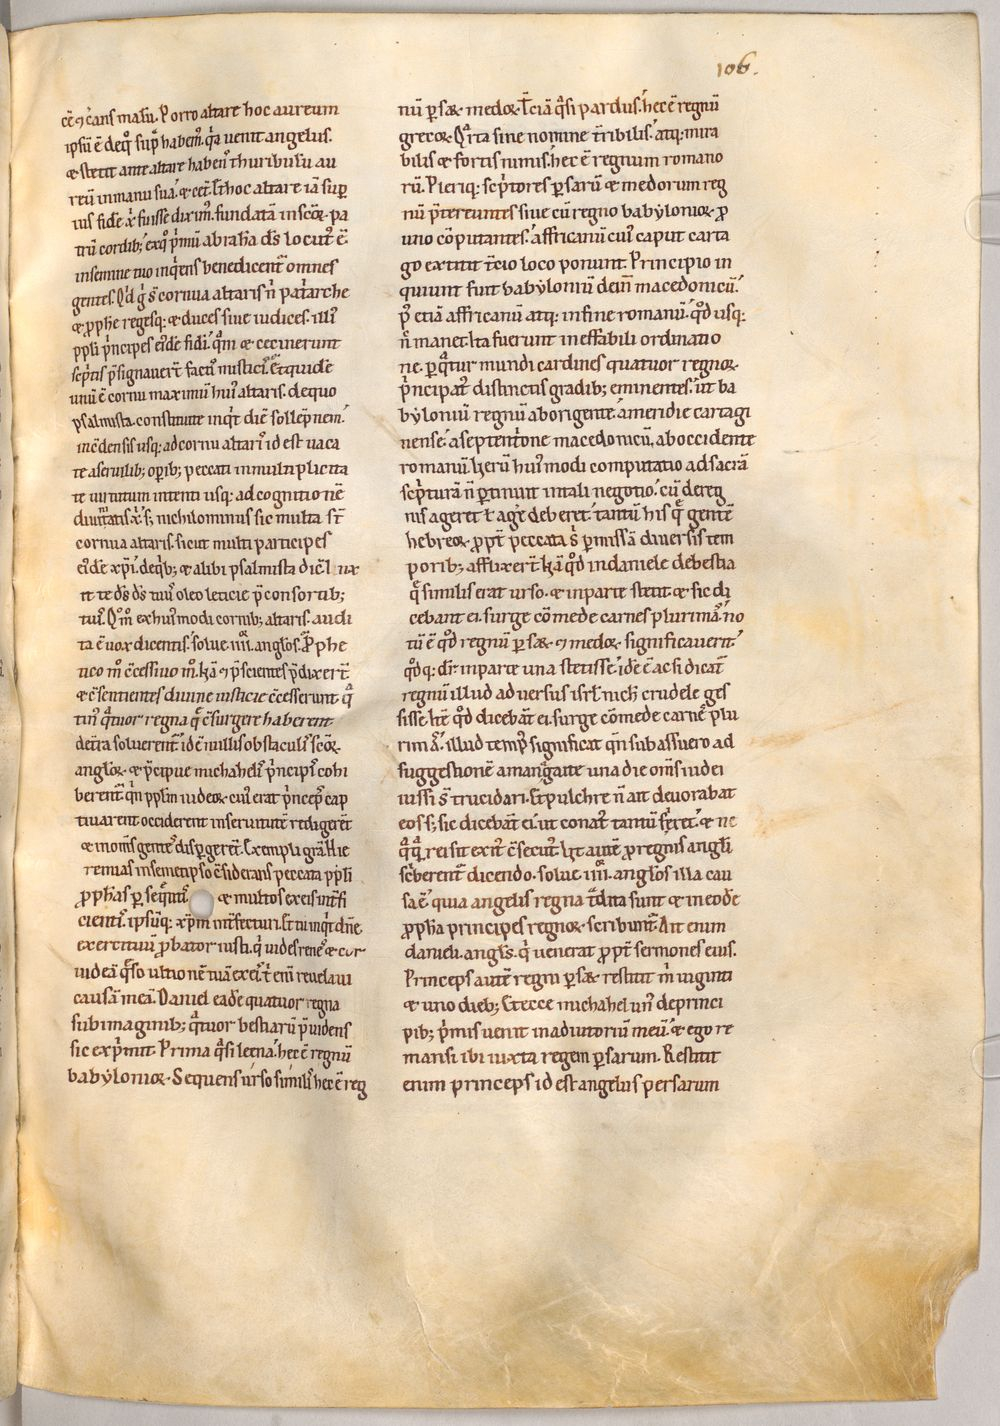 106.
cē ꝯc̄ans malū. Porro altare hoc aureum
ipsū ē deq̊ sup̄ habem᷒. q̄a venit angelus.
⁊ stetit ante altare haben᷒ thuribulū au
reū in manu suā. ⁊ cet̄. Et hoc altare iā sup̄
ius fide x̄ fuisse dixim᷒. fundatā in scōꝝ pa
trū cordib; ex q̊ p̄mū abrahā ds̄ locut᷒ ē.
in semine tuo inq̇ens benedicent᷒ omnes
gentes. Qd̄ ḡ s̄ cornua altaris n̄ pat̄arche
⁊ ꝓphe regesq: ⁊ duces siue iudices. illi᷒
ppl̄i p̄ncipes ei᷒dē fidi. q̄m ⁊ cecinerunt
sc̄ptis p̄signauer̄t factū mistici᷒. Et quidē
unū ē cornu maximū hui᷒ altaris. de quo
psalmista. constitute inq̇t diē sollēpnem.
in c̄densis usq: ad cornu altari᷒ id est uaca
te a seruilib; op̄ib; peccati in multiplicita
te uirtutum intenti usq: ad cognitionē
diuinitatis x̄. s; nichilominus sic multa s̄t
cornua altaris. sicut multi participes
ei᷒dē xp̄i. de q̄b; ⁊ alibi psalmista dic̄ Unx
it te ds̄ ds̄ tuus oleo leticie p̄ consortib;
tuis. Qm̄ ex hui᷒modi cornib; altaris. audi
ta ē uox dicentis. solue. iiii. anglos. Prophe
tico m̊ c̄cessiuo m̊. Nā ⁊ p̄scientes p̄dixer̄t
⁊ c̄sentientes diuine iusticie c̄cesserunt. q̄
tin᷒ q̄tuor regna q̄ c̄surgere haberent
det̄ra soluerent᷒. id ē nullis obstaculis scōꝝ
angloꝝ. ⁊ p̄cipue michaheli᷒ p̄ncipis cohi
berent᷒. q̄n ppl̄m iudeoꝝ cui᷒ erat p̄nceps cap
tiuarent occiderent in seruitutē redigerēt
⁊ in om̄s gentes disp̄gerēt. Exempli grā. Hie
remias in semetipso c̄siderans peccata ppl̄i
ꝓphas p̄ seq̄nti᷒ ⁊ multos ex eis int̄fi
cienti᷒. ipsūq: xp̄m int̄fecturi. Et tu inq̇t dn̄e.
exercituū ꝓbator iusti. q̄ uides renes ⁊ cor
uideā q̄so ultionē tuā ex eis. t̄ enī reuelaui
causā meā. Daniel eadē quatuor regna
sub imaginib; q̄tuor bestiarū p̄uidens
sic exp̄mit. Prima q̄si leena. hec ē regnū
babylonioꝝ. Sequens urso similis. hec ē reg
nū p̄saꝝ ⁊ medoꝝ. T̄cia q̄si pardus. hec ē regnū
grecoꝝ. Q̄rta sine nomine t̄ribilis. atq: mira
bilis ⁊ fortis nimis. hec ē regnum romano
rū. Pleriq: sc̄ptores p̄sarū ⁊ medorum reg
nū p̄tereuntes siue cū regno babylonioꝝ ꝓ
uno cōputantes. affricanū cui᷒ caput carta
go extitit t̄cio loco ponunt. Principio in
quiunt fuit babyloniū dein̄ macedonicū.
p᷒ etiā affricanū atq: in fine romanū. qd̊ usq:
n̄ manet. Ita fuerunt ineffabili ordinatio
ne. p̄ q̄tuor mundi cardines quatuor regnoꝝ.
p̄ncipat᷒ distinctis gradib; eminentes. ut ba
byloniū regnū ab origente. a meridie cartagi
nense. a septent̄one macedonicū. ab occidente
romanū. Verū hui᷒modi computatio ad sacrā
sc̄pturā n̄ p̄tinuit in tali negotio. cū de reg
nis ageret ł age᷒ deberet. tantū his q̄ gentē
hebreoꝝ. ꝓpt̄ peccata s̄ p̄missā diuersis tem
porib; afflixer̄t. Nā qd̊ in daniele de bestia
q̄ similis erat urso. ⁊ in parte stetit ⁊ sic di
cebant ei. surge cōmede carnes plurimas. no
tū ē qd̊ regnū p̄saꝝ ⁊ medoꝝ significauerit.
qd̊q: dr̄ in parte una stetisse. idē ē ac si dicat᷒
regnū illud aduersus isrł. nich̄ crudele ges
sisse. Itē qd̊ dicebāt ei. surge cōmede carnes plu
rimas. illud temp᷒ significat q̄n sub assuero ad
suggestionē aman᷒ gatite una die om̄s iudei
iussi s̄t trucidari. Et pulchre n̄ ait deuorabat
eos. s; sic dicebāt ei. ut conat᷒ tantū fieret. ⁊ ne
q̄q̄ rei sit exit᷒ c̄secut᷒. Ut autē ꝓ regnis angli
sc̄berent᷒ dicendo. solue. iiii. anglos illa cau
sa ē. quia angelis regna t̄dita sunt ⁊ in eodē
ꝓpha principes regnoꝝ. scribunt᷒. Ait enim
danieli angls̄. q̄ uenerat ꝓpt̄ sermones eius.
Princeps autē regni p̄saꝝ restitit m̄ uiginti
⁊ uno dieb; Et ecce michahel un᷒ de princi
pib; p̄mis uenit in adiutoriū meū. ⁊ ego re
mansi ibi iuxta regem p̄sarum. Restitit
enim princeps id est angelus persarum